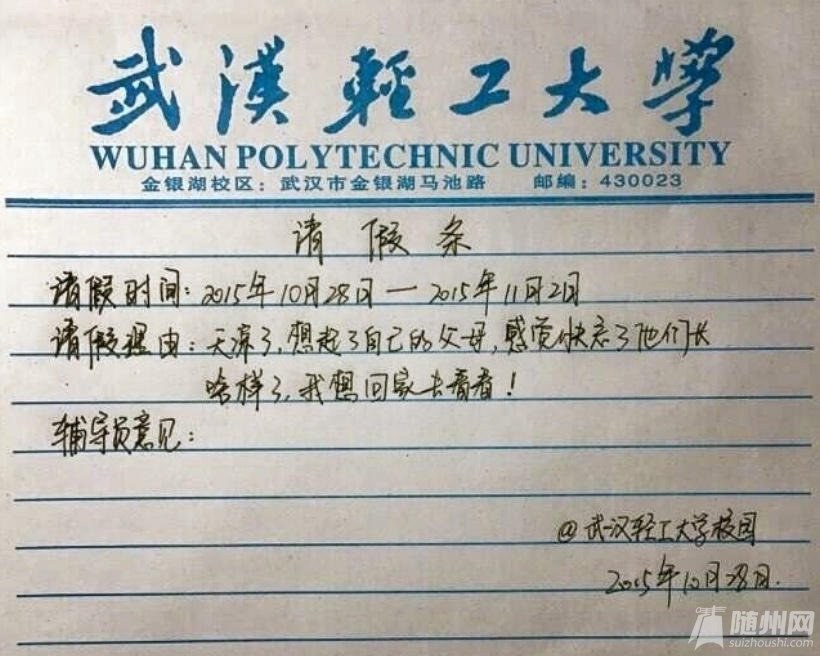 武漢輕工大學
WUHAN POLYTECHNIC UNIVERSITY
金银湖校区：武汉市金银湖马池路 邮编：430023
请假条
请假时间：2015年10月28日—2015年11月2日
请假理由：天凉了，想起了自己的父母，感觉快忘了他们长
啥样了，我想回家去看看！
辅导员意见：
@武汉轻工大学校园
2015年10月28日.
随州网
suizhoushi.com